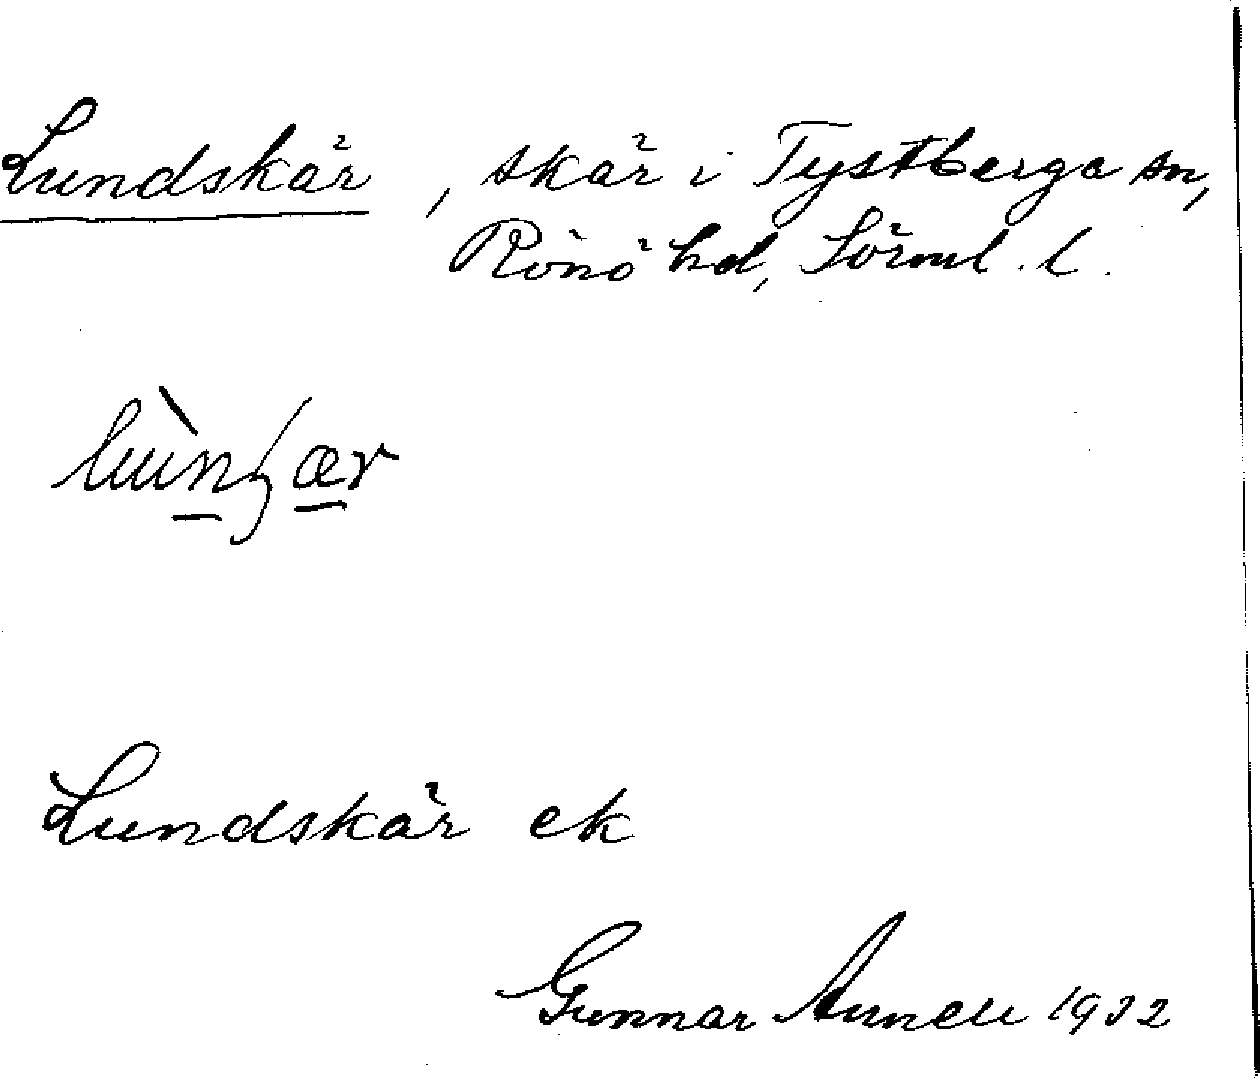 Lundskär, skär i Tystberga sn,
Rönö hd, Sörml. l.
lùnʃær
Lundskär ek
Gunnar Annell 1932